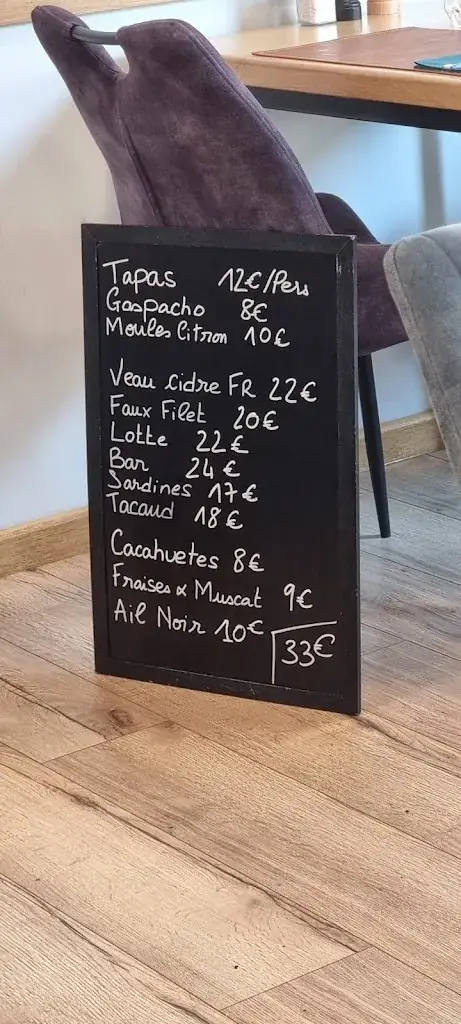 Tapas 12€/Pers
Gaspacho 8€
Moules Citron 10€
Veau Cidre FR 22€
Faux Filet 20€
Lotte 22€
Bar 24€
Sardines 17€
Tacaud 18€
Cacahuetes 8€
Fraises & Muscat 9€
Ail Noir 10€
33€